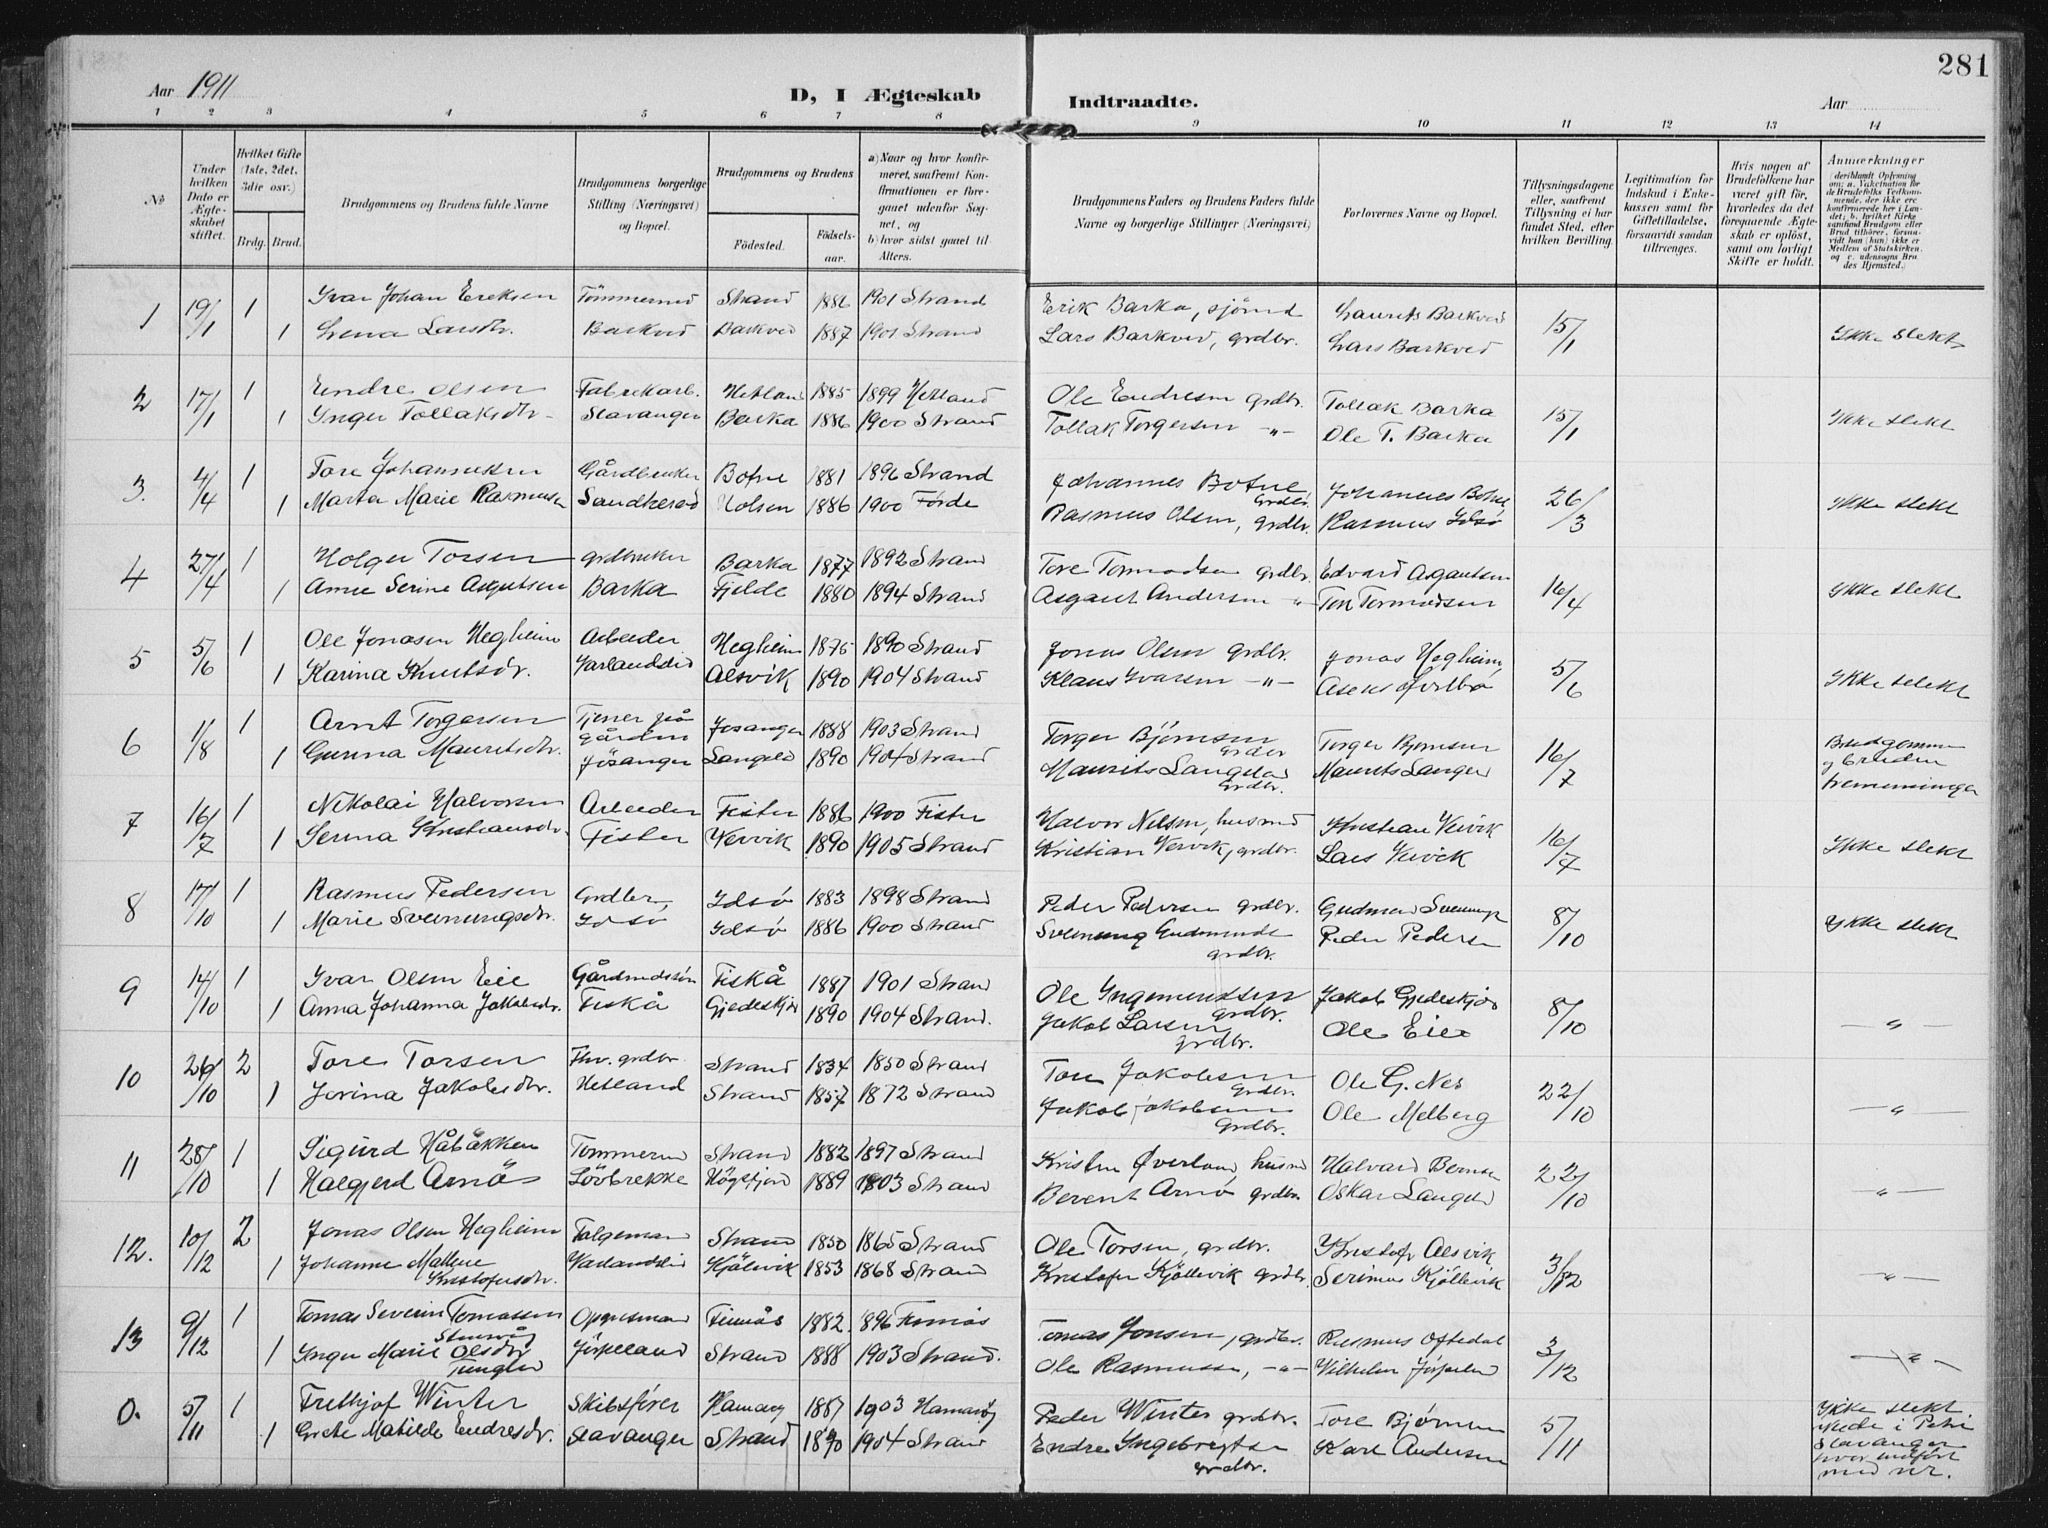 281
Aar 1911 D, I Ægteskab Indtraadte. Aar
1 2 3 4 5 6 7 8 9 10 11 12 13 14
№
Under hvilken Dato er Ægteskabet stiftet.
Hvilket Gifte (1ste, 2det, 3die osv.)
Brdg. Brud.
Brudgommens og Brudens fulde Navne
Brudgommens borgerlige Stilling (Næringsvei) og Bopæl.
Brudgommens og Brudens
Fødested. Fødselsaar.
a) Naar og hvor konfirmeret, saafremt Konfirmationen er foregaaet udenfor Sognet, og
b) hvor sidst gaaet til Alters.
Brudgommens Faders og Brudens Faders fulde Navne og borgerlige Stillinger (Næringsvei)
Forlovernes Navne og Bopæl.
Tillysningsdagene eller, saafremt Tillysning ei har fundet Sted, efter hvilken Bevilling.
Legitimation for Indskud i Enkekassen samt for Giftetilladelse, forsaavidt saadan tiltrænges.
Hvis nogen af Brudefolkene har været gift før, hvorledes da det foregaaende Ægteskab er opløst, samt om lovligt Skifte er holdt.
Anmærkninger (deriblandt Oplysning om: a. Vakcination for de Brudefolks Vedkommende, der ikke ere konfirmerede her i Landet; b. hvilket Kirkesamfund Brudgom eller Brud tilhører, forsaavidt han (hun) ikke er Medlem af Statskirken, og c. udensogns Brudes Hjemsted.)
1 19/1 1 Ivar Johan Eriksen Tömmermd Strand 1886 1901 Strand Erik Barka, sjömd Laurits Barkved 15/1 Ikke slekt
1 Lena Larsdtr. Barkved Barkved 1887 1901 Strand Lars Barkved, grdbr. Lars Barkved
2 17/1 1 Endre Olsen Fabrikarb. Hetland 1885 1899 Hetland Ole Endresen grdbr. Tollak Barka 15/1 Ikke slekt
1 Inger Tollaksdtr. Stavanger Barka 1886 1900 Strand Tollak Torgersen -"- Ole T. Barka
3. 4/4 1 Tore Johannesen Gårdbruker Botne 1881 1896 Strand Johannes Botne Grdbr. Johannes Botne 26/3 Ikke slekt
1 Marta Marie Rasmusen 1886 1900 Førde Rasmus Olsen, grdbr. Rasmus Idsø
4 27/4 1 Holger Torsen grdbruker Barka 1877 1892 Strand Tore Tormodsen grdbr. Edvard Asgautsen 16/4 Ikke slekt
1 Anne Serine Asgautsen Barka Fjelde 1880 1894 Strand Asgaut Andersen -"- Tore Tormodsen
5 5/6 1 Ole Jonasen Hegheim Arbeider Hegheim 1875 1890 Strand Jonas Olsen grdbr. Jonas Hegheim 5/6 Ikke slekt
1 Karina Knutsdr. Varlandslid Alsvik 1890 1904 Strand Klaus Ivarsen -"-
6 1/8 1 Arnt Torgersen Tjener på gården Jösanger 1888 1903 Strand Torger Bjørnsen Grdbr Torger Bjørnsen 16/7 Brudgommen og bruden
1 Gurina Mauritsdtr. Jösanger Langeld 1890 1904 Strand Maurits Langeland Grdbr. Maurits Langeld
7 16/7 1 Nikolai Halvorsen Arbeider Fister 1886 1900 Fister Halvor Nilsen, husmd Kristian Vervik 16/7 Ikke slekt
1 Serina Kristiansdtr. Fister Vervik 1890 1905 Strand Kristian Vervik, grdbr. Lars Vervik
8 17/10 1 Rasmus Pedersen Grdbr, Idsø 1883 1898 Strand Peder Pedersen grdbr. Gudmund Sveinungs 8/10 Ikke slekt
1 Marie Sveinungsdr. Idsø Idsø 1886 1900 Strand Sveinung Gudmunds grdbr. Peder Pedersen
9 14/10 1 Ivar Olsen Eie Gårdmandssön Fiskå 1887 1901 Strand Ole Ingemundsen grdbr. Jakob Gjedeskjør 8/10 -"-
1 Anna Johanna Jakobsdr. Fiskå Gjedeskjær 1890 1904 Strand. Jakob Larsen grdbr. Ole Eie
10 26/10 2 Tore Torsen Fhv. grdbr Strand 1834 1850 Strand Tore Jakobsen Grdbr. Ole G. Nes 22/10 -"-
1 Jorina Jakobsdtr. Hetland Strand 1857 1872 Strand Jakob Jakobsen Grdbr. Ole Melberg
11 28/10 1 Sigurd Håbakken Tommermd Strand 1882 1897 Strand Kristen Øverland, husmd Halvard Bernsen 22/10 -"-
1 Halgjerd Arnö Lövbrekke Högetjern 1889 1903 Strand Berent Arnø grdbr. Oskar Langeld
12. 10/12 2 Jonas Olsen Hegheim Følgemand Strand 1850 1865 Strand Ole Torsen, grdbr. Kristofr Alsvik 3/12 -"-
1 Johanne Mallene Kristofersdr. Varlandslid Kjölevik 1853 1868 Strand Kristofer Kjöllevik grdbr. Serinus Kjöllevik
13 9/12 1 Tomas Severin Tomassen Stensvåg Opsynsmand Finnås 1882 1896 Finnås Tomas Jonsen, grdbr. Rasmus Oftedal 3/12 -"-
1 Inger Marie Olsdtr Tungland Jørpeland Strand 1888 1903 Strand. Ole Rasmussen, -"- Vilhelm Jørpeland
0. 5/11 1 Fritjof Winter Skibsfører Hamarøy 1887 1903 Hamarøy Peder Winter grdbr. Tore Bjørnsen 5/11 Ikke slekt
1 Grete Matilde Endresdr. Stavanger Strand 1890 1904 Strand Endre Ingebregtsen grdbr. Karl Andersen viede i Petri Stavanger hvor indført med nr.